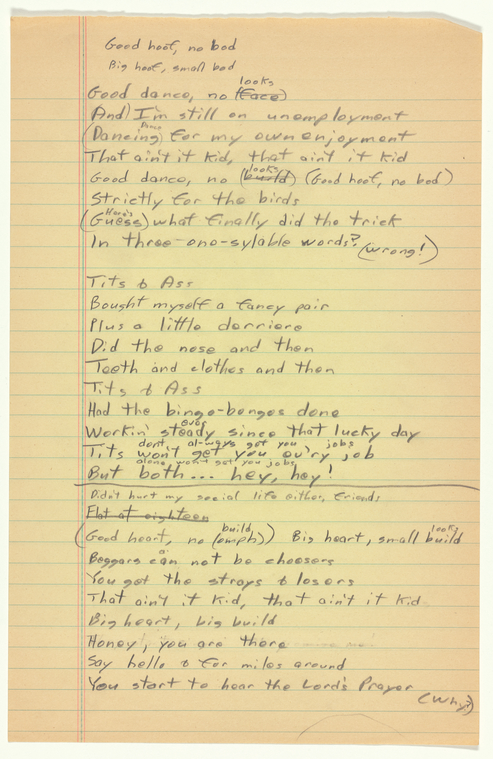 Good hoof, no bod
Big hoof, small bod
looks
Good dance, no (face)
And) I'm still on unemployment
Dance
(Dancing) for my own enjoyment
That ain't it kid, that ain't it kid
looks
Good dance, no (build) (Good hoof, no bod)
Strictly for the birds
Here's
(Guess) what finally did the trick
In three one-sylable words? (wrong!)
Tits & Ass
Bought myself a fancy pair
Plus a little derriere
Did the nose and then
Teeth and clothes and then
Tits & Ass
Had the bingo-bongos done
ever
Workin' steady since that lucky day
dont, al-ways get you jobs
Tits won't get you ev'ry job
alone won't get you jobs
But both... hey, hey!
Didn't hurt my social life either, friends
Flat at eighteen
build looks
(Good heart, no (omph)) Big heart, small build
Beggars can not be choosers
You get the strays & losers
That ain't it kid, that ain't it kid
Big heart, big build
Honey, you are there
Say hello & for miles around
You start to hear the Lord's Prayer
(Why?)